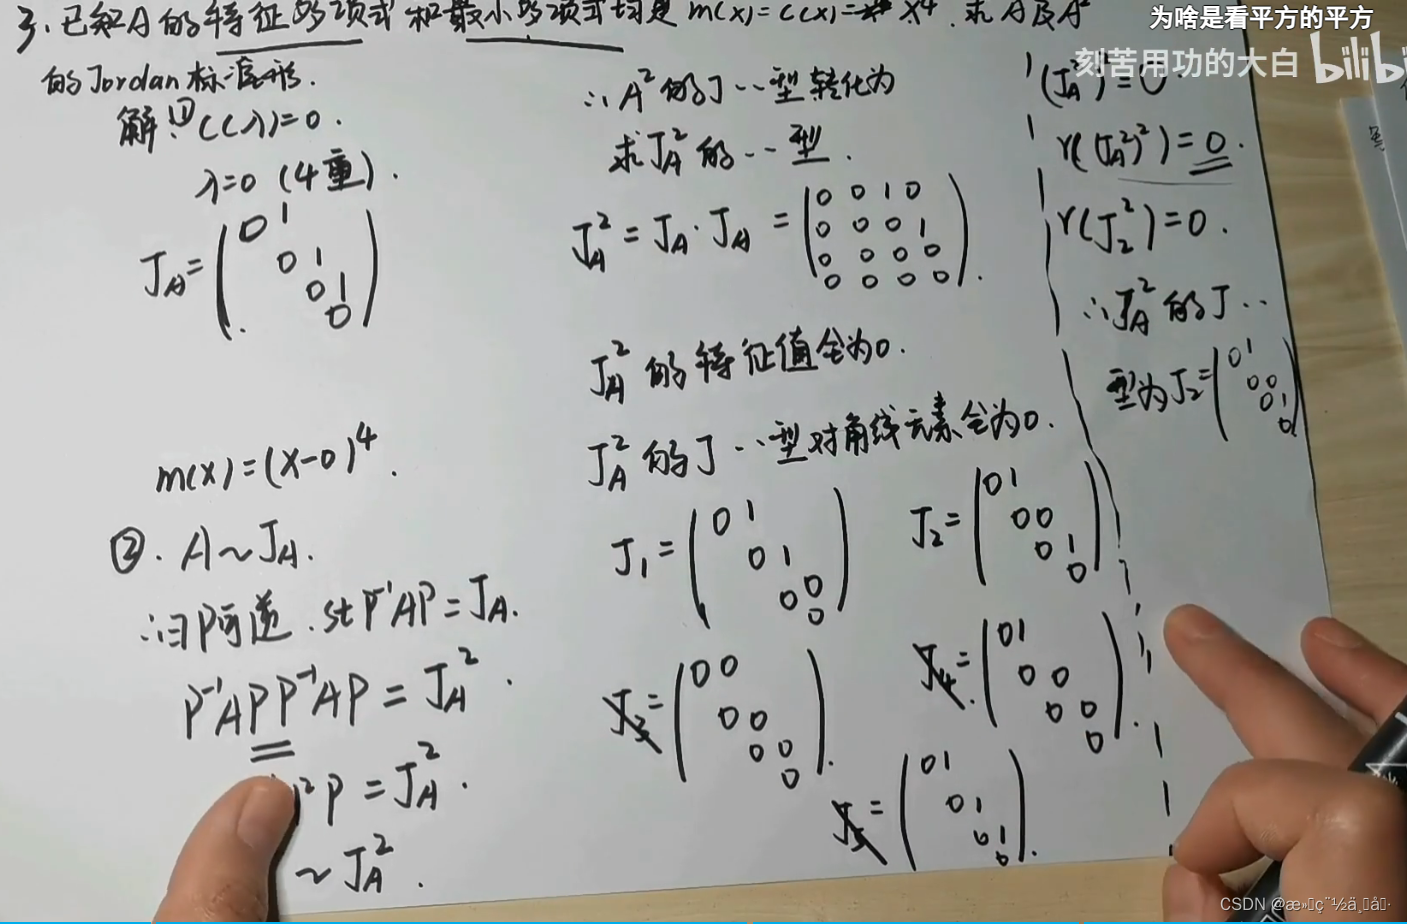 3. 已知A的特征多项式和最小多项式均是 m(x)=C(x)=x⁴. 求A及A²
的Jordan标准形.
解: ① C(λ)=0.
λ=0 (4重).
J_A=
0 1
0 1
0 1
0
m(x)=(x-0)⁴.
②. A~J_A.
∴∃P可逆. st P⁻¹AP=J_A.
P⁻¹APP⁻¹AP=J_A².
²P=J_A².
~J_A².
∴A²的J··型转化为
求J_A²的··型.
J_A²=J_A·J_A=
0 0 1 0
0 0 0 1
0 0 0 0
0 0 0 0
J_A²的特征值全为0.
J_A²的J··型对角线元素全为0.
J₁=
0 1
0 1
0 0
0
J₂=
0 1
0 0
0 1
0
J₃=
0 0
0 0
0 0
0
J₄=
0 1
0 0
0 0
0
J₅=
0 1
0 1
0 1
0
(J_A²)²=0.
r((J_A²)²)=0.
r(J₂²)=0.
∴J_A²的J··
型为J₂=
0 1
0 0
0 1
0
为啥是看平方的平方
刻苦用功的大白 bilibi
CSDN